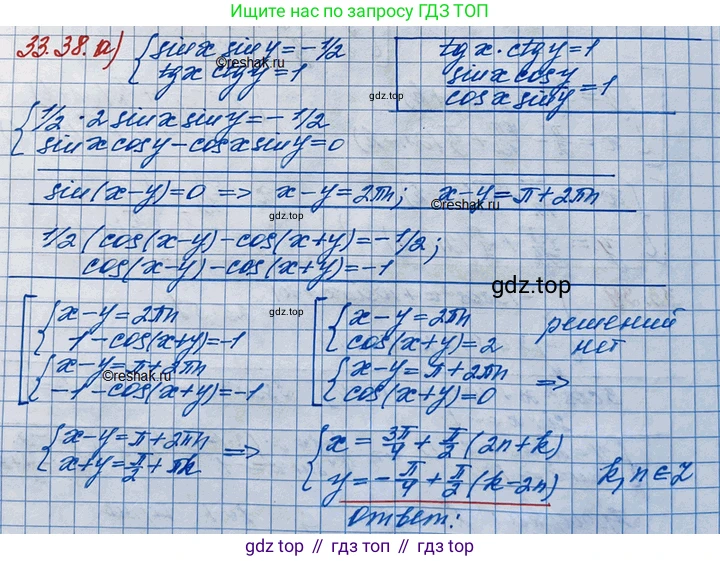 Ищите нас по запросу ГДЗ ТОП
33.38.a) { sinx siny = -1/2
tgx ctgy = 1
tgx · ctgy = 1
sinx cosy / cosx siny = 1
gdz.top
©reshak.ru
{ 1/2 · 2 sinx siny = -1/2
sinx cosy - cosx siny = 0
sin(x-y)=0 => x-y=2πn; x-y=π+2πn
gdz.top
©reshak.ru
1/2 (cos(x-y) - cos(x+y) = -1/2;
cos(x-y) - cos(x+y) = -1
gdz.top
[ { x-y=2πn
1 - cos(x+y) = -1
{ x-y=π+2πn
-1 - cos(x+y) = -1
gdz.top
©reshak.ru
[ { x-y=2πn
cos(x+y)=2
решений нет
{ x-y=π+2πn
cos(x+y)=0 =>
{ x-y=π+2πn
x+y=π/2+πk =>
{ x = 3π/4 + π/2 (2n+k)
y = -π/4 + π/2 (k-2n)
k, n ∈ Z
Ответ:
gdz.top // гдз.топ // gdz.top // гдз.топ